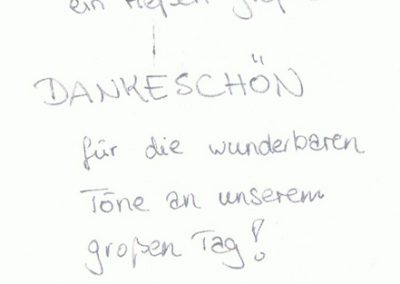 ein
DANKESCHÖN
für die wunderbaren
Töne an unserem
großen Tag!